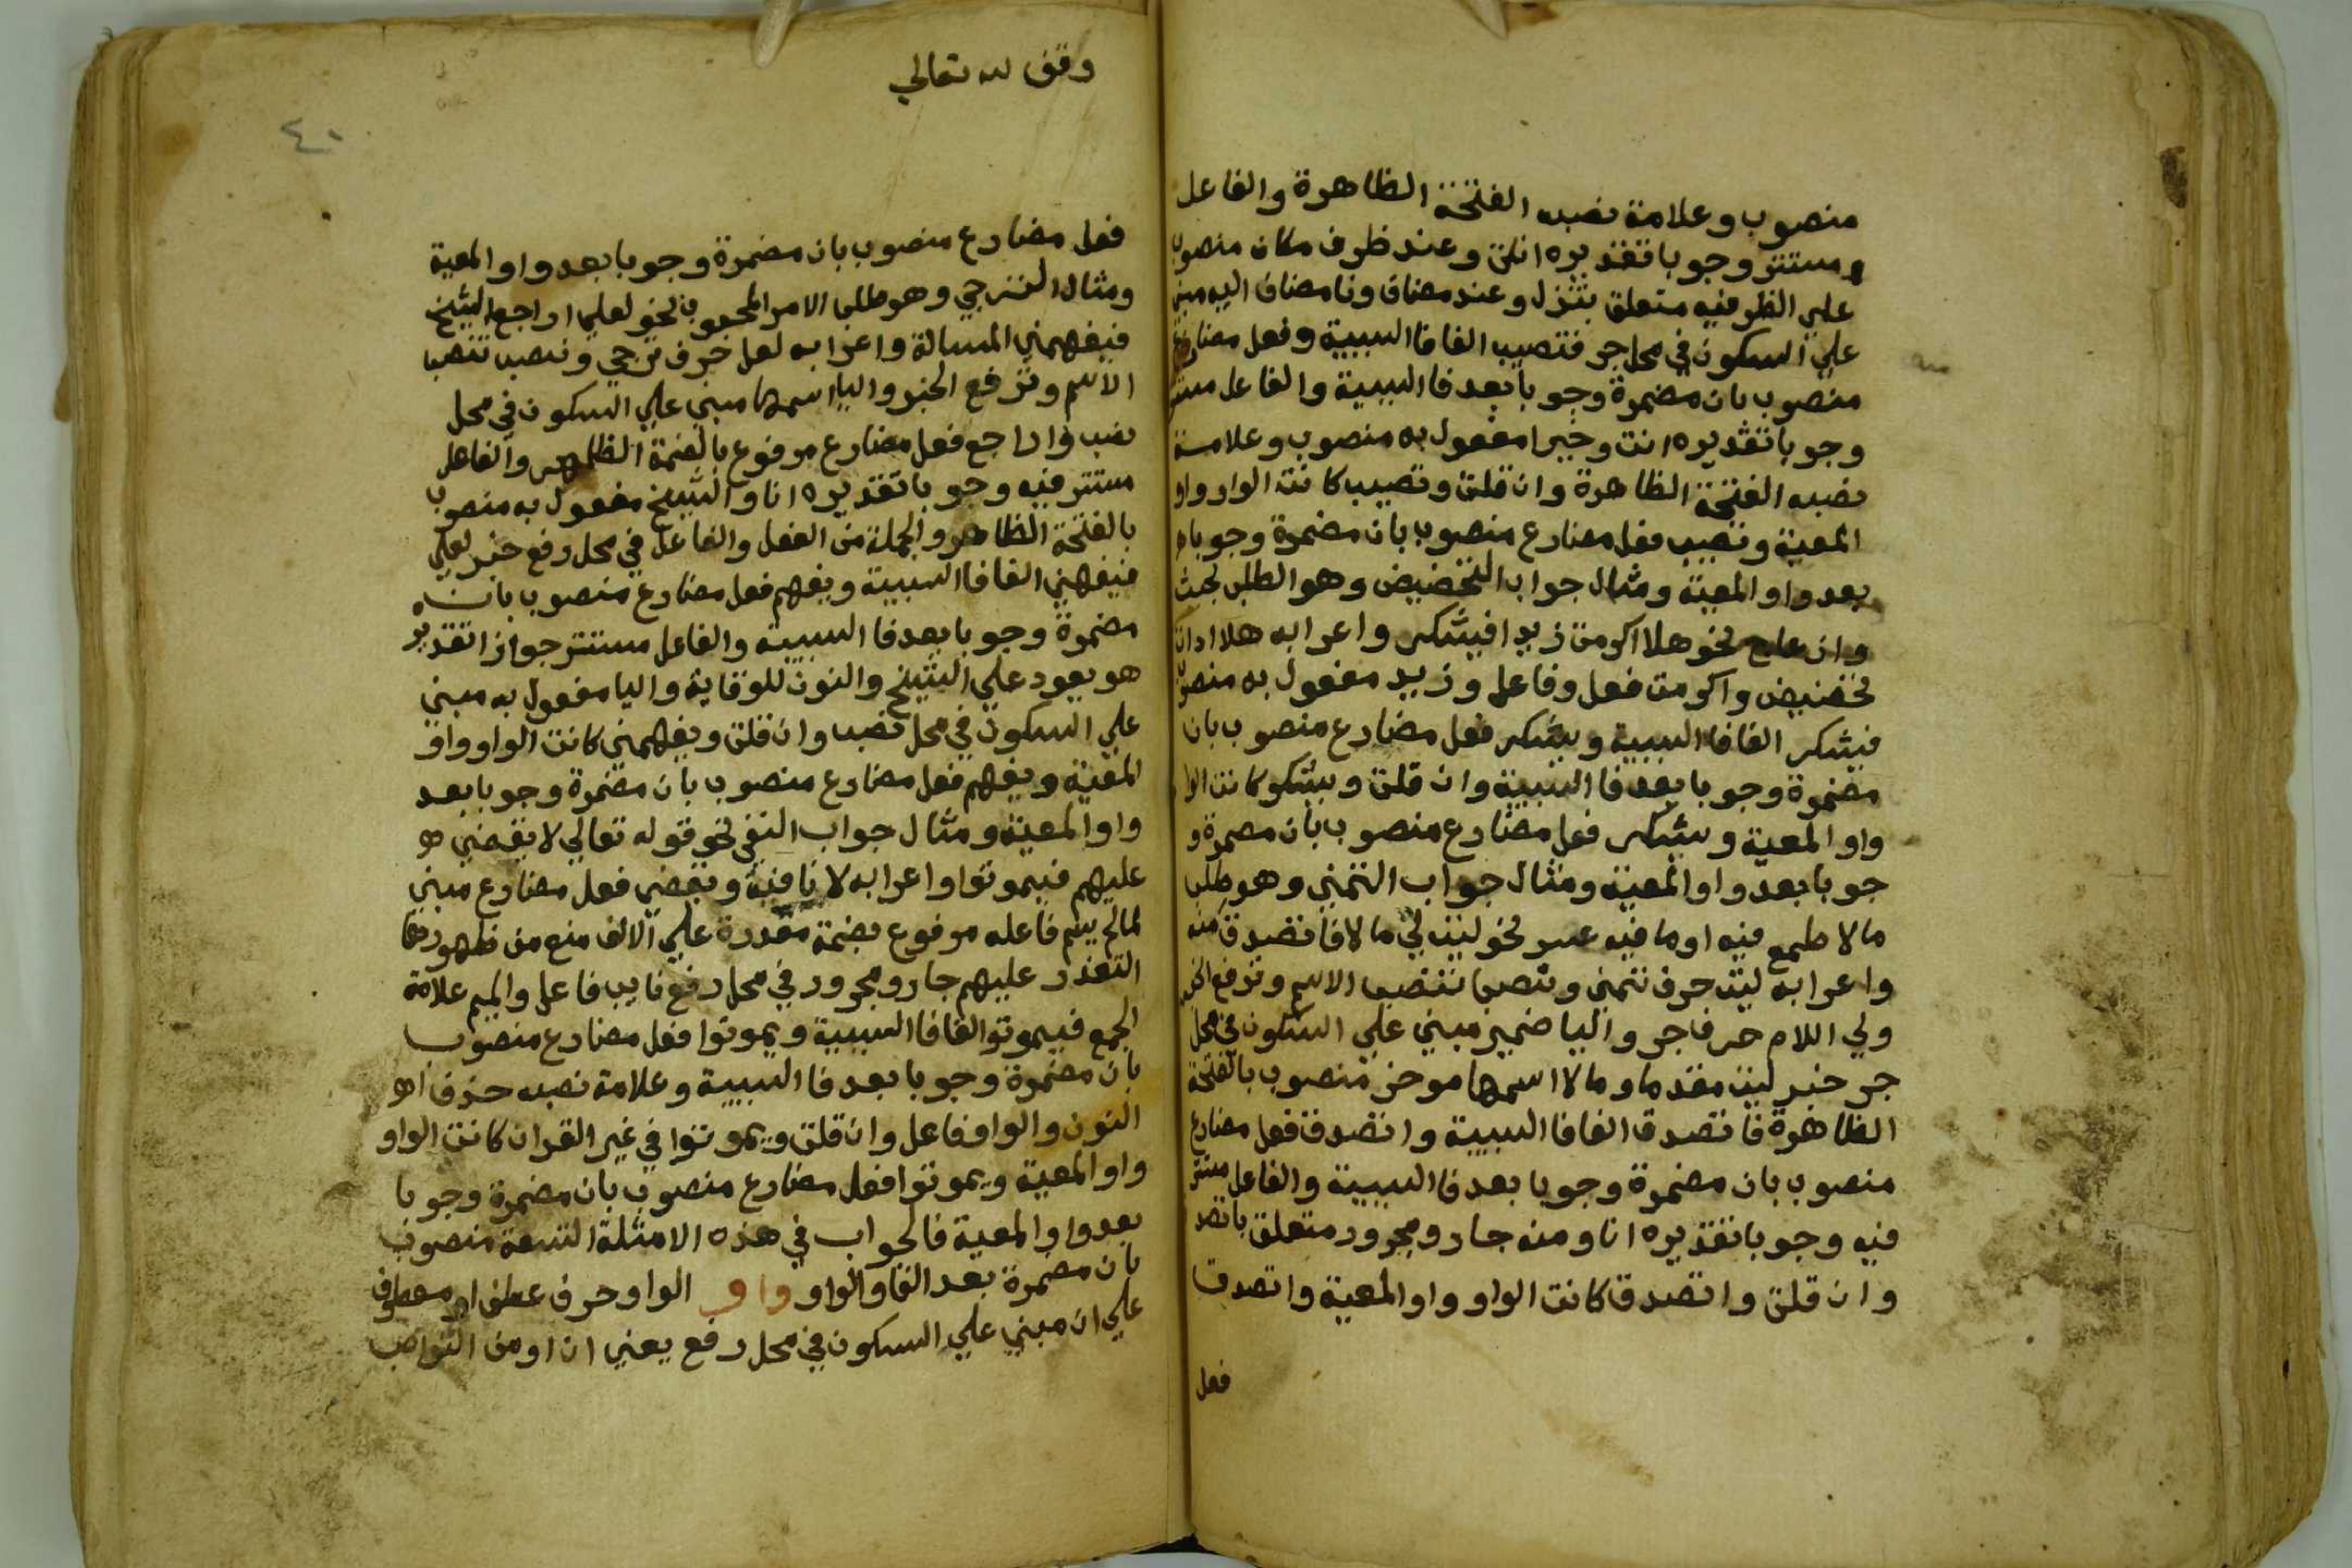 منصوب وعلامة نصبه الفتحة الظاهرة والفاعل
مستتر وجوبا تقديره انت وعند ظرف مكان منصوب
علي الظرفيه متعلق بتنزل وعند مضاف ونا مضاف اليه مبني
علي السكون في محل جر فتصيب الفا فا السببية وفعل مضارع
منصوب بان مضمرة وجوبا بعد فا السببية والفاعل مستتر
وجوبا تقديره انت وخيرا مفعول به منصوب وعلامة
نصبه الفتحة الظاهرة وان قلت وتصيب كانت الواو واو
المعية وتصيب فعل مضارع منصوب بان مضمرة وجوبا
بعد واو المعية ومثال جواب التحضيض وهو الطلب بحث
وازعاج نحو هلا اكرمت زيدا فيشكر واعرابه هلا اداة
تحضيض واكرمت فعل وفاعل وزيد مفعول به منصوب
فيشكر الفا فا السببية ويشكر فعل مضارع منصوب بان
مضمرة وجوبا بعد فا السببية وان قلت ويشكر كانت الوا
واو المعية ويشكر فعل مضارع منصوب بان مضمرة و
جوبا بعد واو المعية ومثال جواب التمني وهو طلب
ما لا طمع فيه او ما فيه عسر نحو ليت لي مالا فاتصدق منه
واعرابه ليت حرف تمني ونصب تنصب الاسم وترفع الخبر
ولي اللام حرف جر واليا ضمير مبني علي السكون في محل
جر خبر ليت مقدما ومالا اسمها موخر منصوب بالفتحة
الظاهرة فاتصدق الفا فا السببية واتصدق فعل مضارع
منصوب بان مضمرة وجوبا بعد فا السببية والفاعل مستتر
فيه وجوبا تقديره انا ومنه جار ومجرور متعلق باتصد
وان قلت واتصدق كانت الواو واو المعية واتصدق
فعل
وقف لله تعالي
٤٠
فعل مضارع منصوب بان مضمرة وجوبا بعد واو المعية
ومثال الترجي وهو طلب الامر المحبوب نحو لعلي اراجع الشيخ
فيفهمني المسالة واعرابه لعل حرف ترجي ونصب تنصب
الاسم وترفع الخبر واليا اسمها مبني علي السكون في محل
نصب واراجع فعل مضارع مرفوع بالضمة الظاهره والفاعل
مستتر فيه وجوبا تقديره انا والشيخ مفعول به منصوب
بالفتحة الظاهره والجملة من الفعل والفاعل في محل رفع خبر لعلي
فيفهمني الفا فا السببية ويفهم فعل مضارع منصوب بان
مضمرة وجوبا بعد فا السببية والفاعل مستتر جوازا تقديره
هو يعود علي الشيخ والنون للوقاية واليا مفعول به مبني
علي السكون في محل نصب وان قلت ويفهمني كانت الواو واو
المعية ويفهم فعل مضارع منصوب بان مضمرة وجوبا بعد
واو المعية ومثال جواب النفي نحو قوله تعالي لا يقضي
عليهم فيموتوا واعرابه لا نافية ويقضي فعل مضارع مبني
لما لم يسم فاعله مرفوع بضمة مقدرة علي الالف منع من ظهورها
التعذر عليهم جار ومجرور في محل رفع نايب فاعل والميم علامة
الجمع فيموتوا الفا فا السببية ويموتوا فعل مضارع منصوب
بان مضمرة وجوبا بعد فا السببية وعلامة نصبه حذف
النون والواو فاعل وان قلت ويموتوا في غير القران كانت الواو
واو المعية ويموتوا فعل مضارع منصوب بان مضمرة وجوبا
بعد واو المعية فالجواب في هذه الامثلة التسعة منصوب
بان مضمرة بعد الفا والواو واو الواو حرف عطف او معطوف
علي ان مبني علي السكون في محل رفع يعني ان او من النواصب